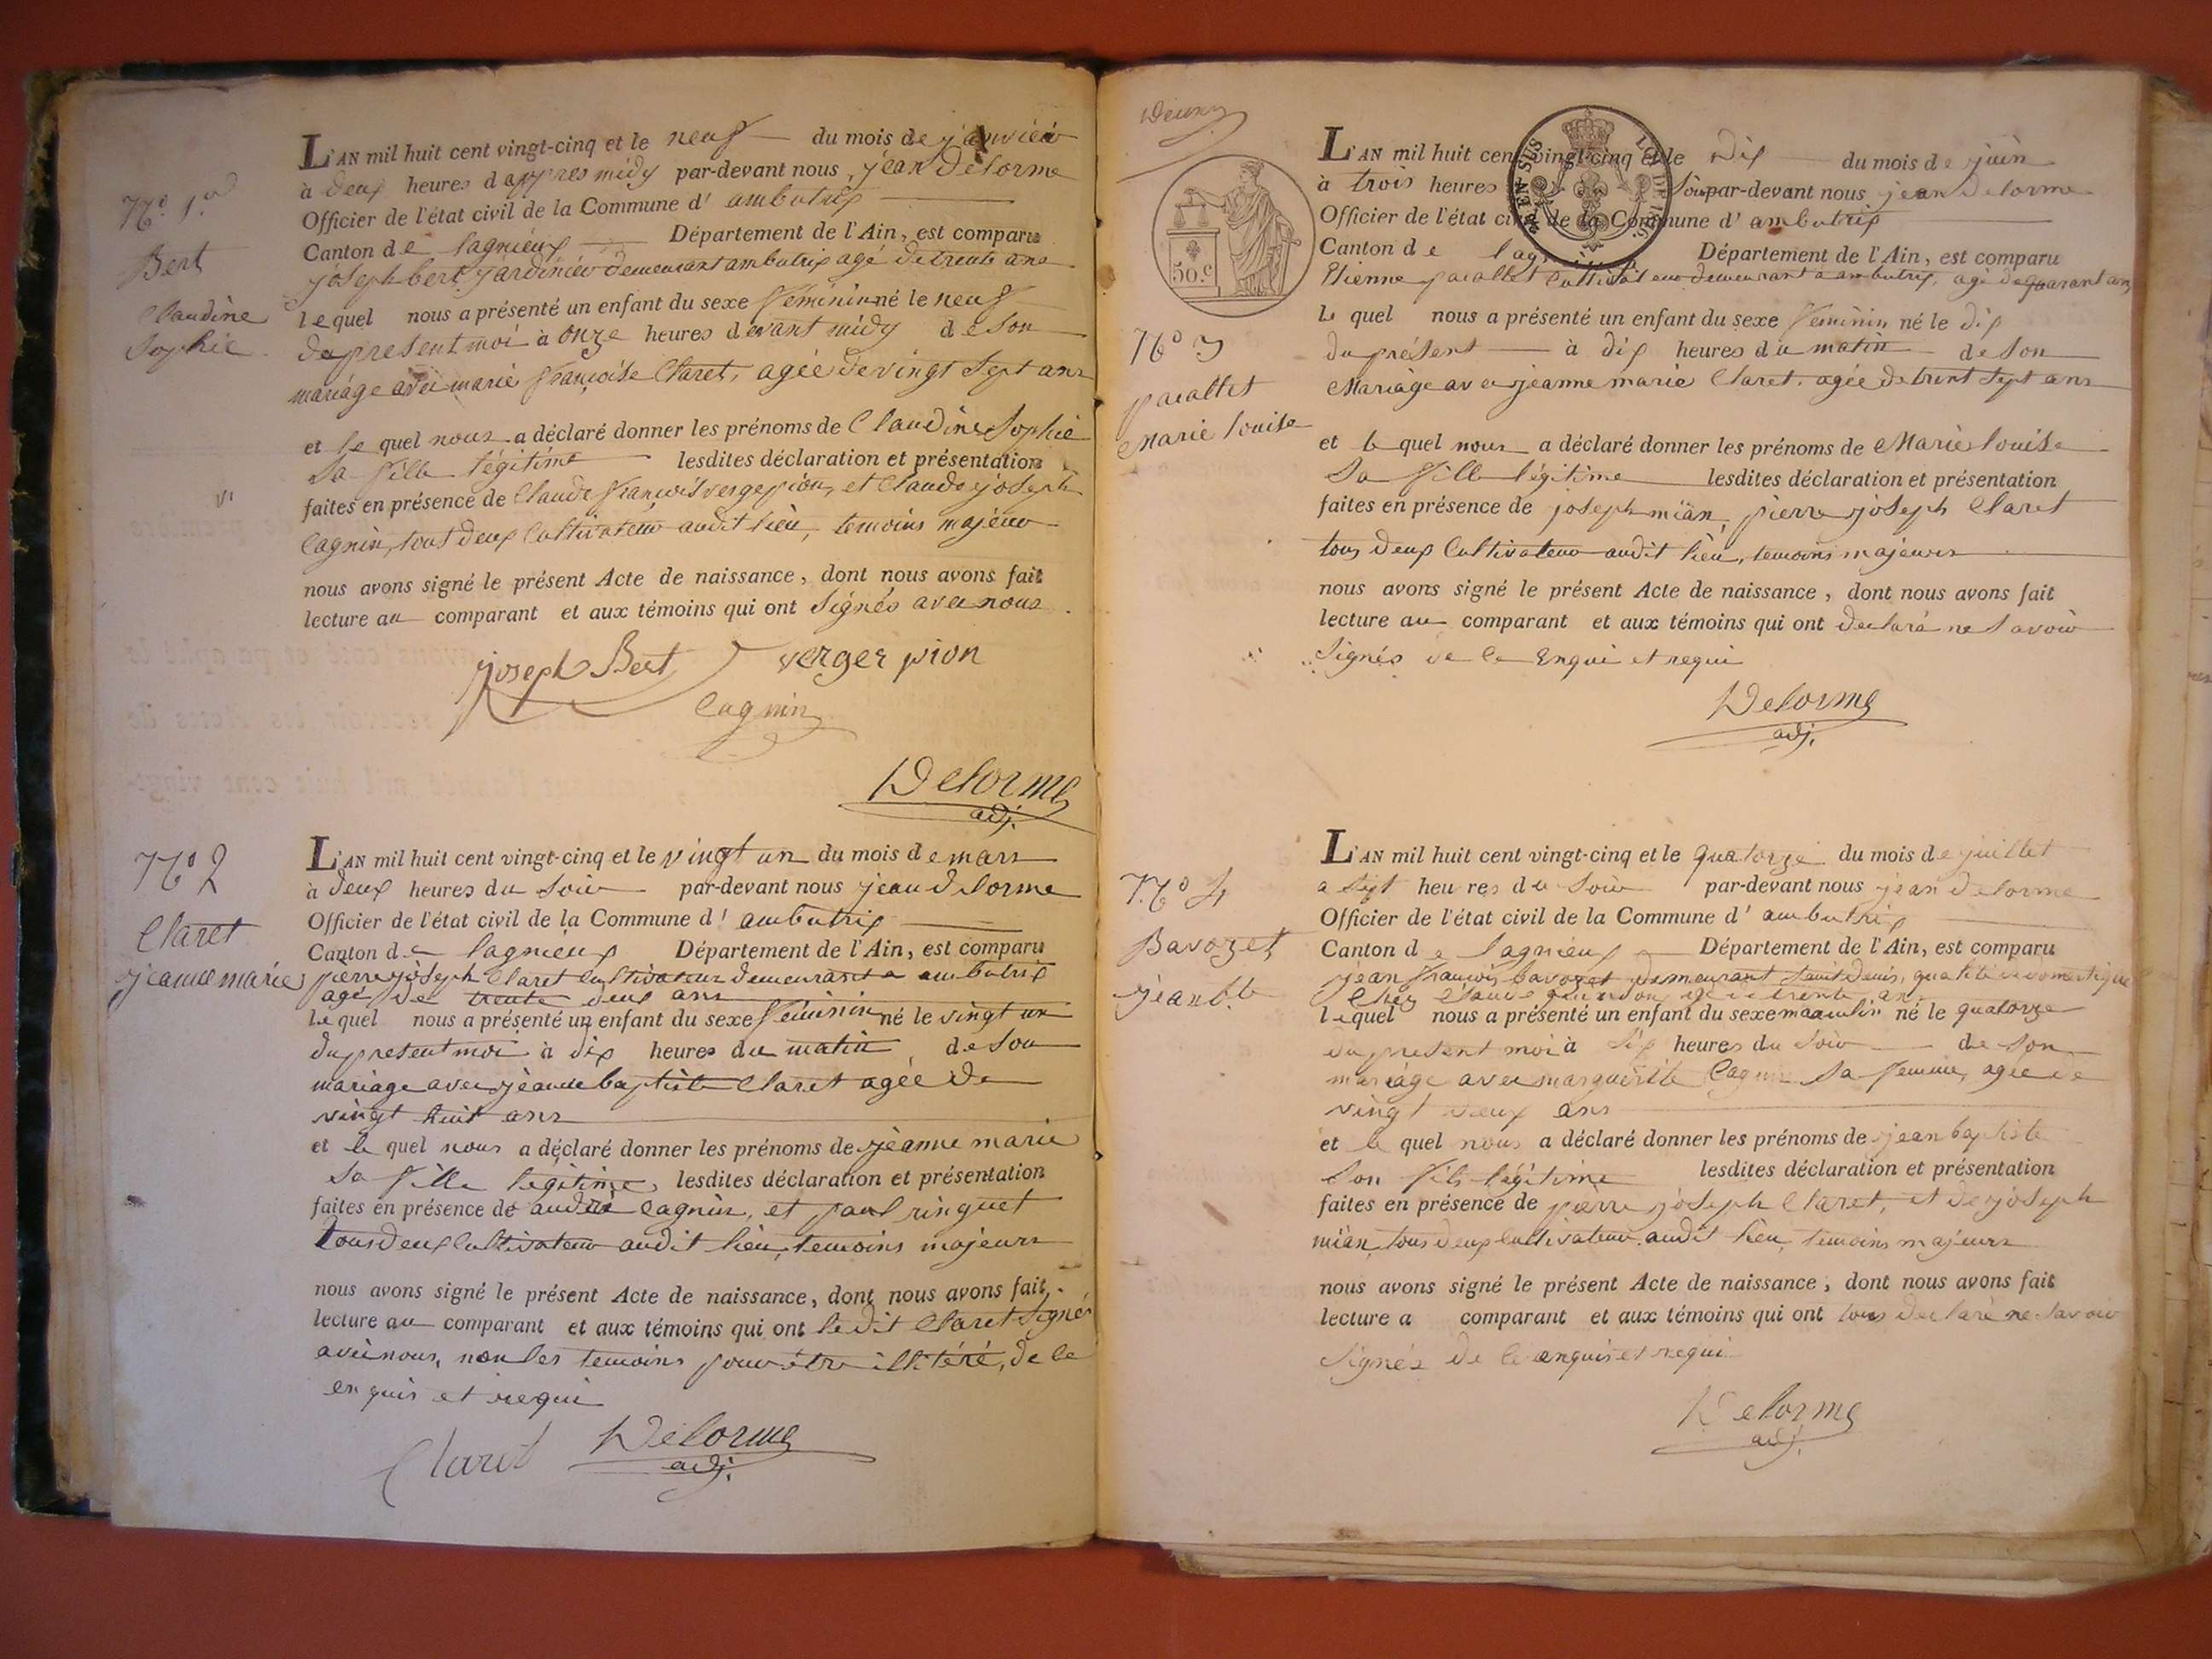 N.o 1.er
Bert
Claudine
Sophie
L'AN mil huit cent vingt-cinq et le neuf du mois de janvier
à deux heures d'appres midy par-devant nous, jean Delorme
Officier de l'état civil de la Commune d' ambutrix
Canton de lagnieux Département de l'Ain, est comparu
joseph bert jardinier demeurant ambutrix agé de trente ans
lequel nous a présenté un enfant du sexe feminin né le neuf
du present moi à onze heures devant midy de son
mariage avec marie françoise Claret, agée de vingt sept ans
et le quel nous a déclaré donner les prénoms de Claudine Sophie
Sa fille légitime lesdites déclaration et présentation
faites en présence de Claude françois vergerpion, et Claude joseph
Cagnin, tout deux Cultivateur audit lieu, temoins majeur
nous avons signé le présent Acte de naissance, dont nous avons fait
lecture au comparant et aux témoins qui ont Signés avec nous.
joseph Bert verger pion
Cagnin
Delorme
adj.
N.o 2
Claret
jeanne marie
L'AN mil huit cent vingt-cinq et le vingt un du mois de mars
à deux heures du Soir par-devant nous jean delorme
Officier de l'état civil de la Commune d' ambutrix
Canton de lagnieux Département de l'Ain, est comparu
pierre joseph Claret cultivateur demeurant a ambutrix
agé de trente deux ans
le quel nous a présenté un enfant du sexe féminin né le vingt un
du present moi à dix heures du matin de son
mariage avec jeanne baptiste Claret agée de
vingt huit ans
et le quel nous a déclaré donner les prénoms de jeanne marie
Sa fille légitime, lesdites déclaration et présentation
faites en présence de andré cagnin, et paul ringuet
tous deux Cultivateur audit lieu, temoins majeurs
nous avons signé le présent Acte de naissance, dont nous avons fait
lecture au comparant et aux témoins qui ont le dit Claret Signés
avec nous, non les temoins pour être illitéré, de ce
enquis et requi
Claret Delorme
adj.
Deux
50.c
N.o 3
pacallet
Marie louise
L'AN mil huit cent vingt-cinq et le dix du mois de juin
à trois heures Soir par-devant nous jean Delorme
Officier de l'état civil de la Commune d' ambutrix
Canton de lag Département de l'Ain, est comparu
Etienne pacallet Cultivateur demeurant à ambutrix, agé de quarant ans
le quel nous a présenté un enfant du sexe feminin né le dix
du présent à dix heures du matin de son
Mariage avec jeanne marie Claret, agée de trent Sept ans
et le quel nous a déclaré donner les prénoms de Marie louise
Sa fille légitime lesdites déclaration et présentation
faites en présence de joseph miân, pierre joseph Claret
tous deux Cultivateur audit lieu, temoins majeurs
nous avons signé le présent Acte de naissance, dont nous avons fait
lecture au comparant et aux témoins qui ont declaré ne Savoir
Signés de ce Enqui et requi
Delorme
adj.
N.o 4
Bavozet
jean b.te
L'AN mil huit cent vingt-cinq et le quatorze du mois de juillet
a Sept heures du Soir par-devant nous jean delorme
Officier de l'état civil de la Commune d' ambutrix
Canton de lagnieux Département de l'Ain, est comparu
jean françois bavozet demeurant Saint denis, qualité de domestique
Chez Claude agé de trente ans
lequel nous a présenté un enfant du sexe masculin né le quatorze
du present moi à Six heures du Soir de son
mariage avec marguerite Cagnin Sa femme, agée de
vingt deux ans
et le quel nous a déclaré donner les prénoms de jean baptiste
Son fils légitime lesdites déclaration et présentation
faites en présence de pierre joseph Claret, et de joseph
miân, tous deux cultivateur audit lieu, temoins majeurs
nous avons signé le présent Acte de naissance, dont nous avons fait
lecture a comparant et aux témoins qui ont tous declaré ne Savoir
Signés de ce enquis et requi
Delorme
adj.